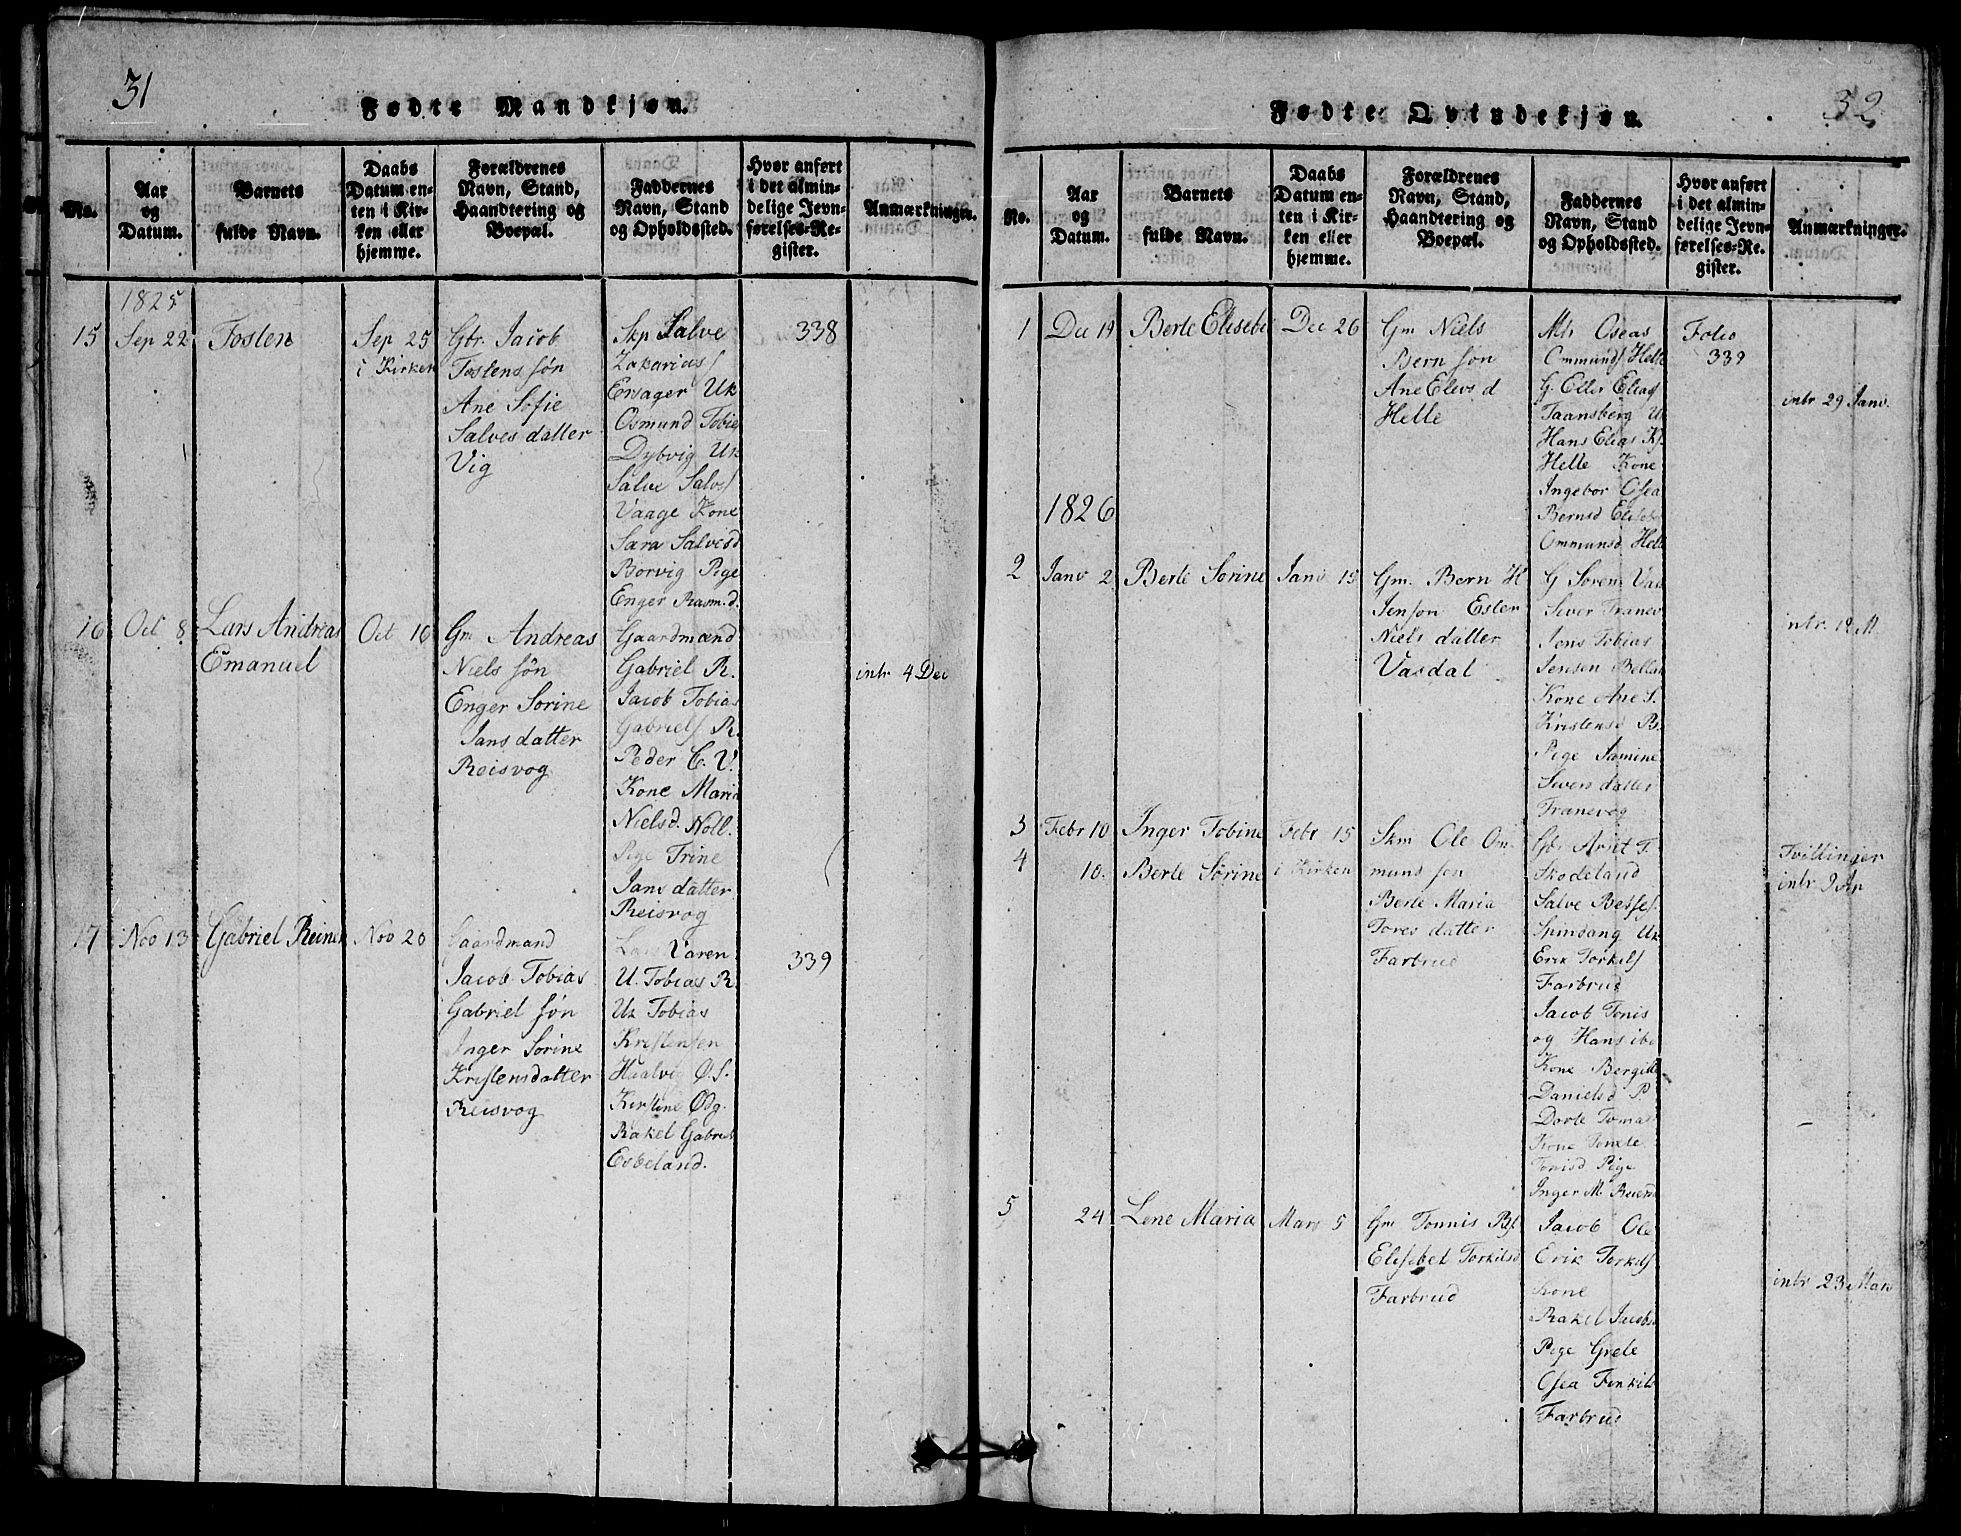 31
Fødte Mandkjøn.
No.
Aar
og
Datum.
Barnets
fulde Navn.
Daabs
Datum en-
ten i Kir-
ken eller
hjemme.
Forældrenes
Navn, Stand,
Haandtering og
Boepæl.
Faddernes
Navn, Stand
og Opholdssted.
Hvor anført
i det almin-
delige Jevn-
førelses-Re-
gister.
Anmærkninger.
1825
15
Sep 22
Tosten
Sep 25
i Kirken
Gbr. Jacob
Tostens søn
Ane Sofie
Salves datter
Vig
Skp Salve
Zakarias
Ersager Uk
Osmund Tobia
Dybvig Uk
Salve Salvs
Vaage Kone
Sara Salvesd
Borvig Pige
Enger Rasm.d.
338
16
Oct 8
Lars Andreas
Emanuel
Oct 16
Gm Andreas
Niels søn
Enger Sorine
Jans datter
Reisvog
Gaardmænd
Gabriel R.
Jacob Tobias
Gabriels R.
Peder C. V.
Kone Maria
Nielsd. Noll.
Pige Trine
Jans datter
Reisvog
intr 4 Dec
17
Nov 13
Gabriel Reiner
Nov 20
Gaardmand
Jacob Tobias
Gabriel søn
Inger Sorine
Kristensdatter
Reisvog
Varen
U. Tobias R
Uk Tobias
Kristensen
Haalvig Ø.S.
Kirstine Ødg.
Rakel Gabriels
Esbeland.
339
32
Fødte Qvindekjøn.
No.
Aar
og
Datum.
Barnets
fulde Navn.
Daabs
Datum en-
ten i Kir-
ken eller
hjemme.
Forældrenes
Navn, Stand,
Haandtering og
Boepæl.
Faddernes
Navn, Stand
og Opholdssted.
Hvor anført
i det almin-
delige Jevn-
førelses-Re-
gister.
Anmærkninger.
1
Dec 19
Berte Elisebe
Dec 26
Gm Niels
Bern søn
Ane Elevs d
Helle
Oseas
Ommunds Helle
G. Elles Elias
Taansberg U
Hans Elias Ks.
Helle Kone
Ingebor Osea
Bernsd Elisebe
Ommunsd Helle
Folio
339
intr 29 Janv.
1826
2
Janv 2
Berte Sorine
Janv 15
Gm. Bern H
Jensøn Ester
Niels datter
Vasdal
G Soren Vas
Siver Tranev
Jens Tobias
Jensen Bellan
Kone Ane S.
Kristensd B.
Pige Samine
Sivers datter
Tranevog
intr. 12 M
3
Febr 10
Inger Tobine
Febr 15
4
10.
Berte Sørine
i Kirken
Skm Ole Om-
mund søn
Berte Maria
Tores datter
Farbrud
Gbr Arnt T.
Skodeland
Salve Besses.
Spindang Uk
Erik Torkils
Farbrud
Jacob Tonis
og Hans ibi
Kone Bergitte
Danielsd P
Dorte Tomas
Kone Tonete
Tonisd Pige
Inger M. Reiersd
Tvillinger
intr 9 Ap
5
24
Lene Maria
Mars 5
Gm Tonnis Bs.
Elisebet Torkilsd
Farbrud
Jacob Ole
Erik Torkils
Kone
Rakel Jacobsd
Pige Grete
Osea Torkils
Farbrud
intr 23 Mars